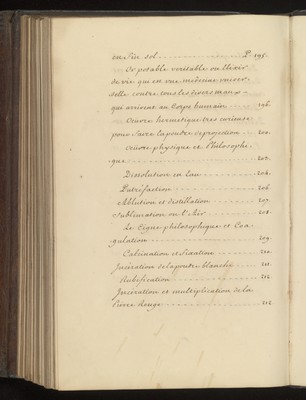 en Pur sol - - - P. 195.
Or potable veritable ou Elexir
de vie qui est une medecine univer-
selle contre tous les divers maux
qui arrivent au Corps humain - - - 196.
Oeuvre hermetique tres curieuse
pour faire la poudre de projection - - - 200.
Oeuvre physique et Philosophi-
que - - - 203.
Dissolution en Eau - - - 204.
Putrefaction - - - 206.
Ablution et distillation - - - 207.
Sublimation ou l'Ether - - - 208.
Le Cigne philosophique et Coa-
gulation - - - 209.
Calcination et Fixation - - - 210.
Inceration de la poudre blanche - - - 211.
Rubification - - - 212
Inceration et multiplication de la
Pierre Rouge - - - 212